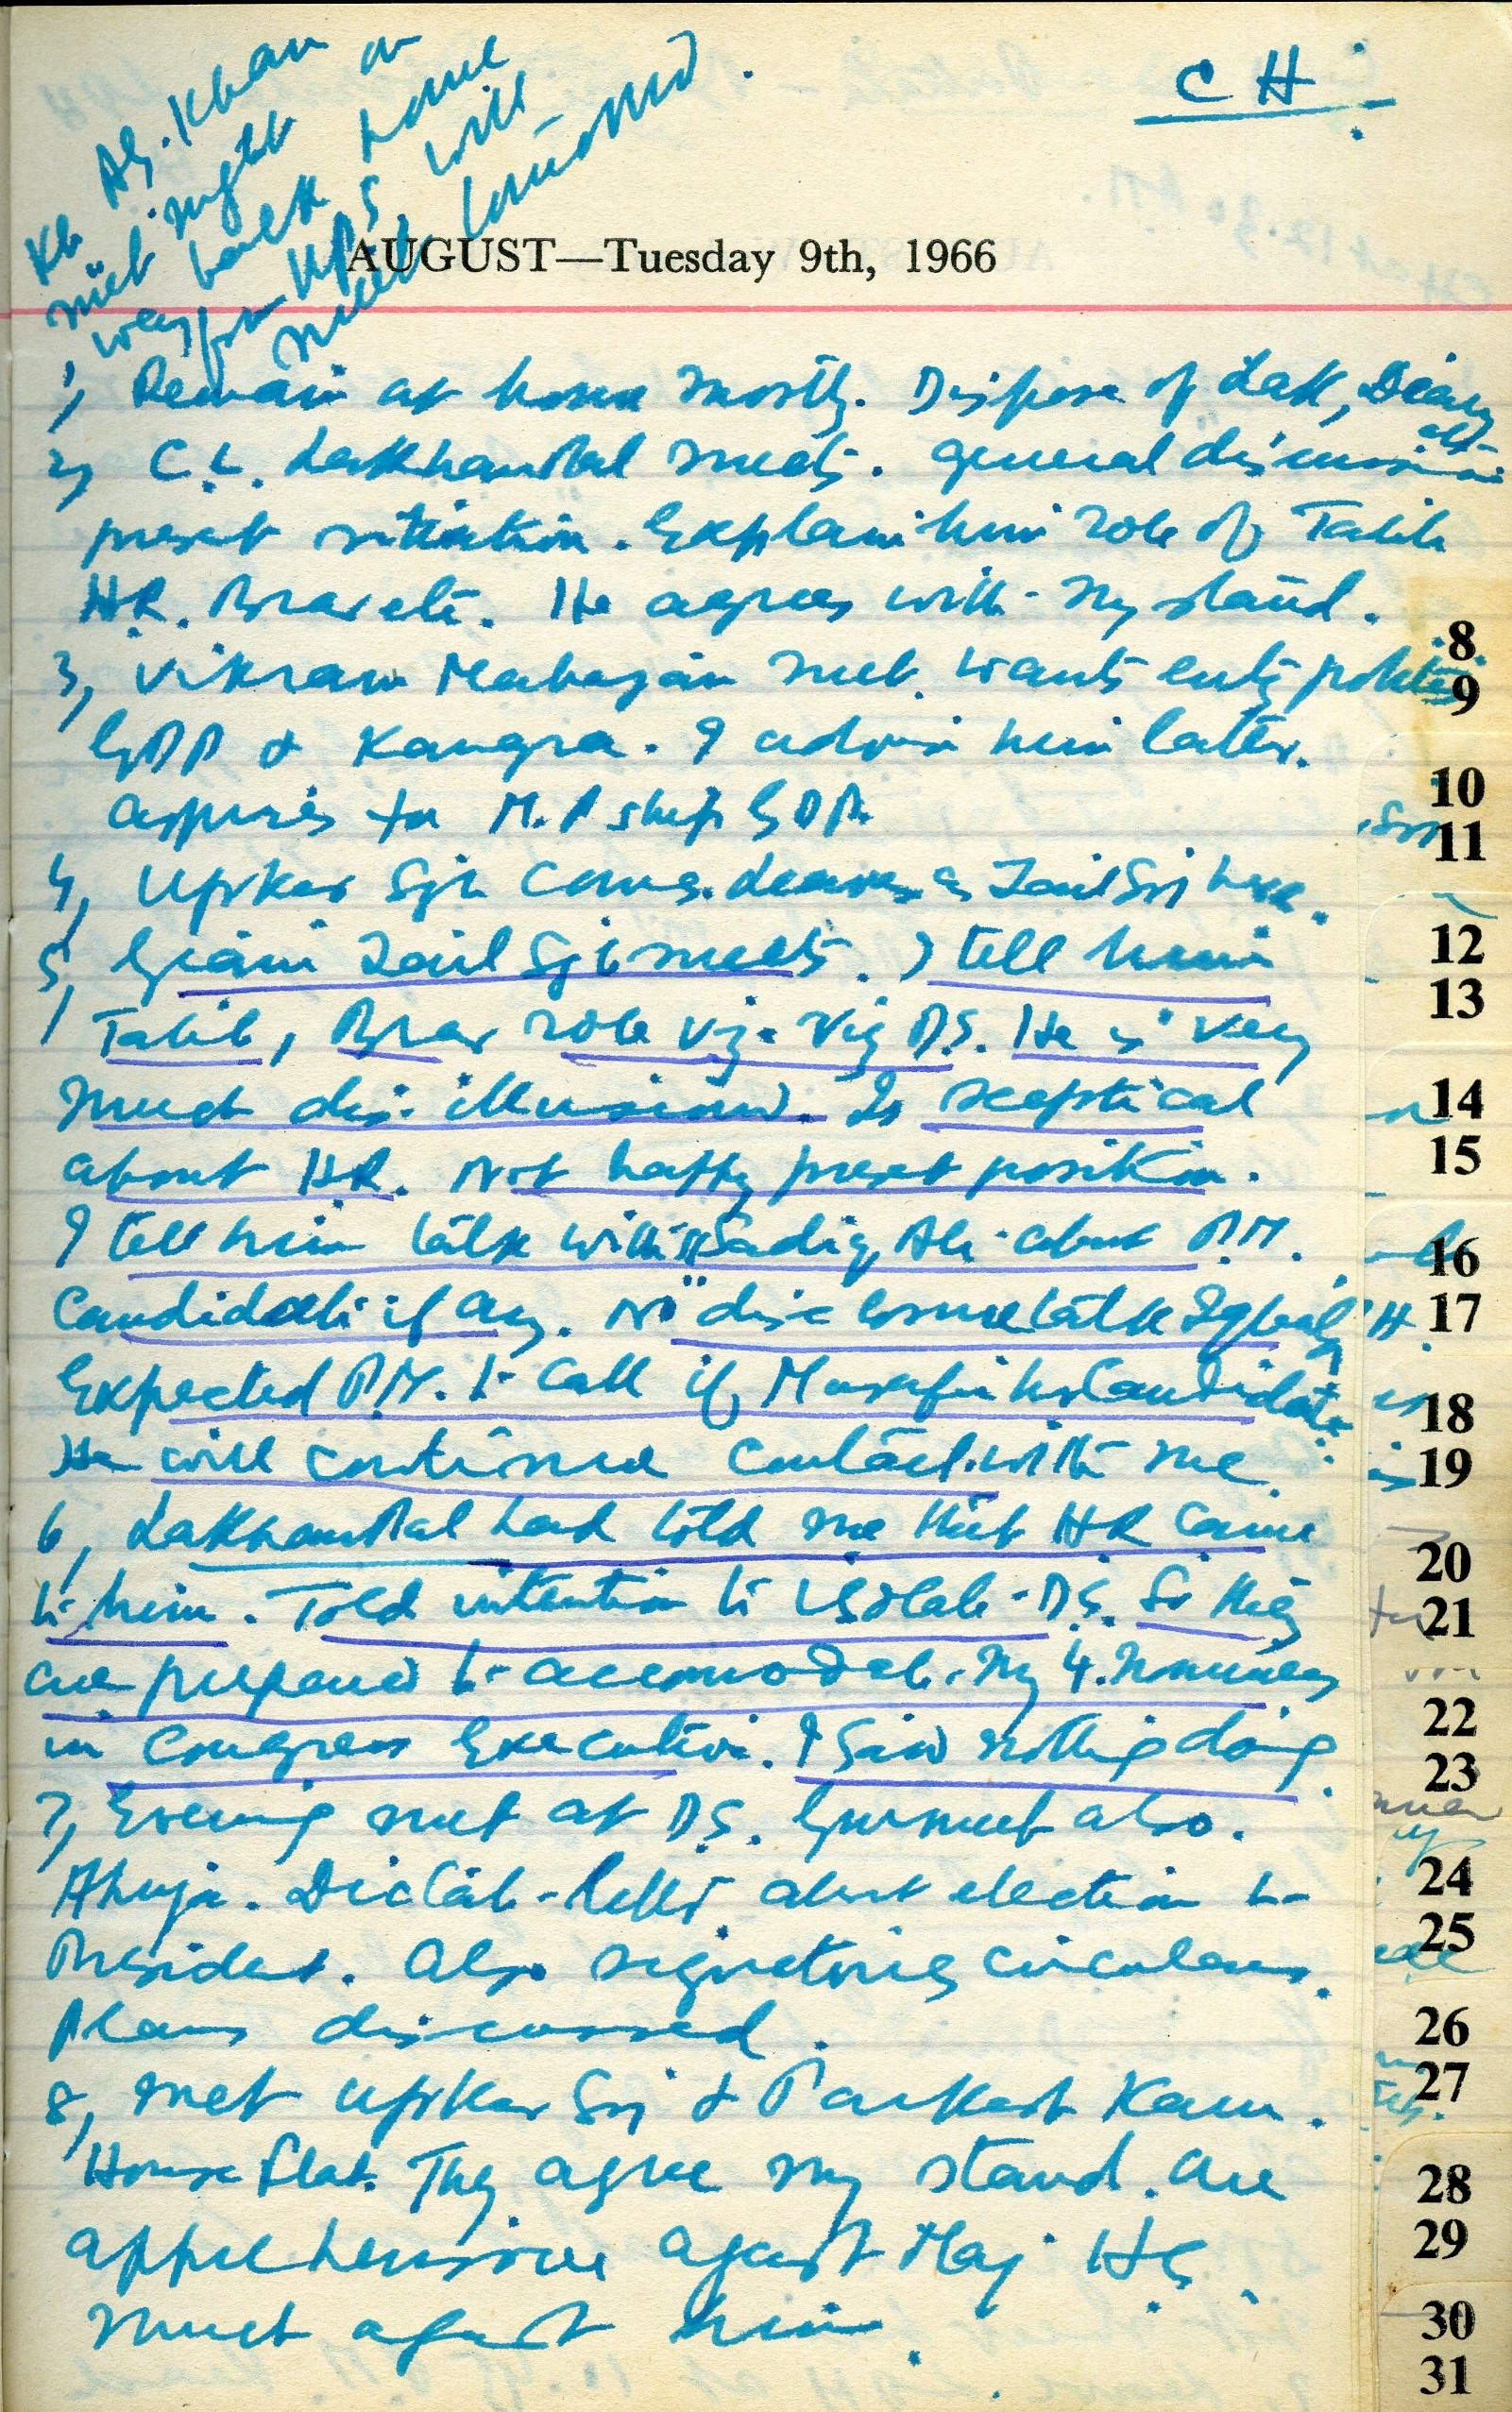 C H
Kh Ag. Khan
met night on
way back home
from U.P.S. will
meet
AUGUST—Tuesday 9th, 1966
1, Remain at home mostly. Dispose of Dak, Diary etc
2, C.L. Lakhanpal meets. General discussion
present situation. Explain him role of Talib
H.R. Brar etc. He agrees with my stand.
3, Vikram Mahajan met. Wants entry politics
GDP & Kangra. I advise him later.
Aspires for M.P ship GDP.
4, Upkar Sgh comes. Leaves as Zail Sgh here.
5, Giani Zail Sgh meets. I tell him
Talib, Brar role viz. viz D.S. He is very
much dis-illusioned. Is sceptical
about H.R. Not happy present position.
I tell him talk with Sadiq Ali about P.M.
Candidate if any. No disclosure talk Iqbal
Expected P.M. to call if Musafir her Candidate
He will continue contact with me.
6, Lakhanpal had told me that HR came
to him. Told intention to isolate D.S. So they
are prepared to accomodate my 4 nominees
in Congress Executive. I said nothing doing.
7, Evening met at D.S. Gurmeet also.
Ahuja. Dictate letter about election to
President. Also signatories circulars.
Plans discussed.
8, Met Upkar Sgh & Parkash Kaur.
House Flat. They agree my stand. Are
apprehensive against Maj HS.
Much against him.
8
9
10
11
12
13
14
15
16
17
18
19
20
21
22
23
24
25
26
27
28
29
30
31